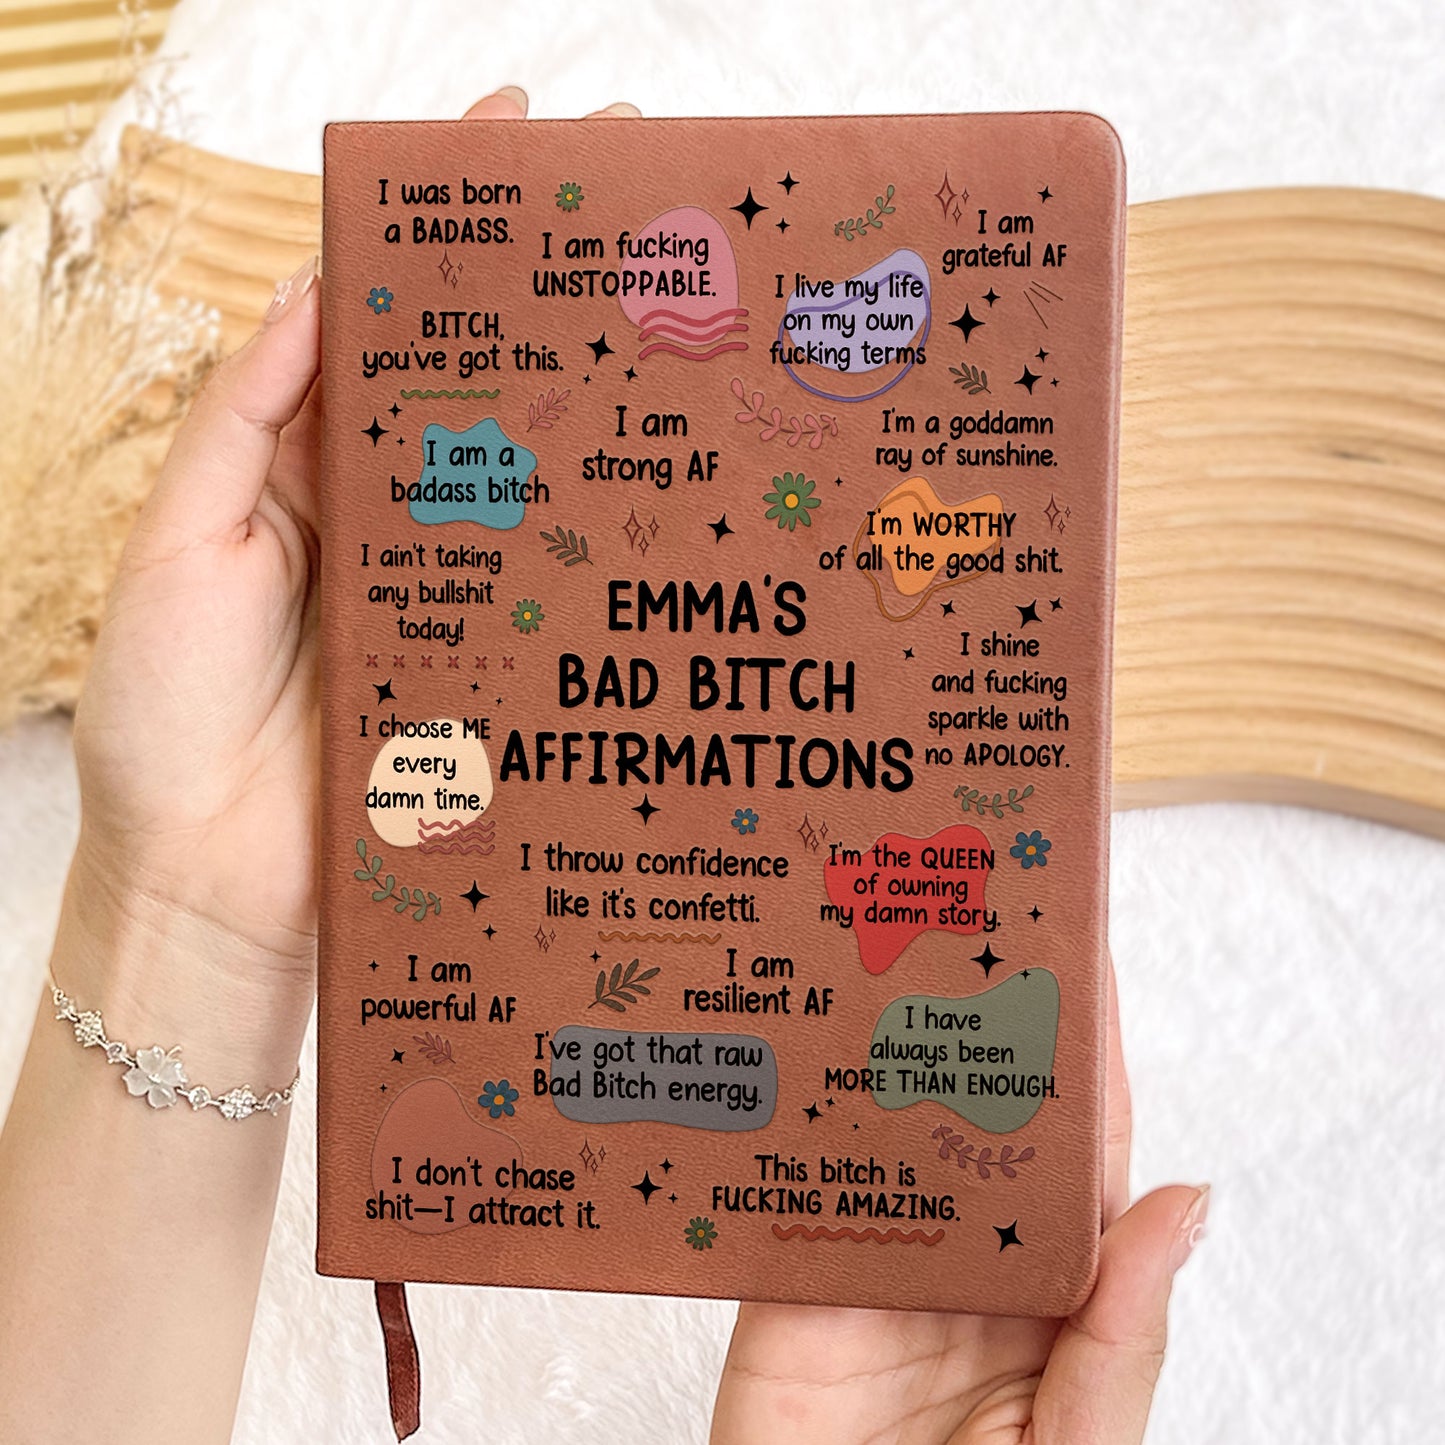 I was born
a BADASS.
I am fucking
UNSTOPPABLE.
I am
grateful AF
I live my life
on my own
fucking terms
BITCH,
you've got this.
I am
strong AF
I'm a goddamn
ray of sunshine.
I am a
badass bitch
I'm WORTHY
of all the good shit.
I ain't taking
any bullshit
today!
EMMA'S
BAD BITCH
AFFIRMATIONS
I shine
and fucking
sparkle with
no APOLOGY.
I choose ME
every
damn time.
I throw confidence
like it's confetti.
I'm the QUEEN
of owning
my damn story.
I am
powerful AF
I am
resilient AF
I have
always been
MORE THAN ENOUGH.
I've got that raw
Bad Bitch energy.
I don't chase
shit—I attract it.
This bitch is
FUCKING AMAZING.